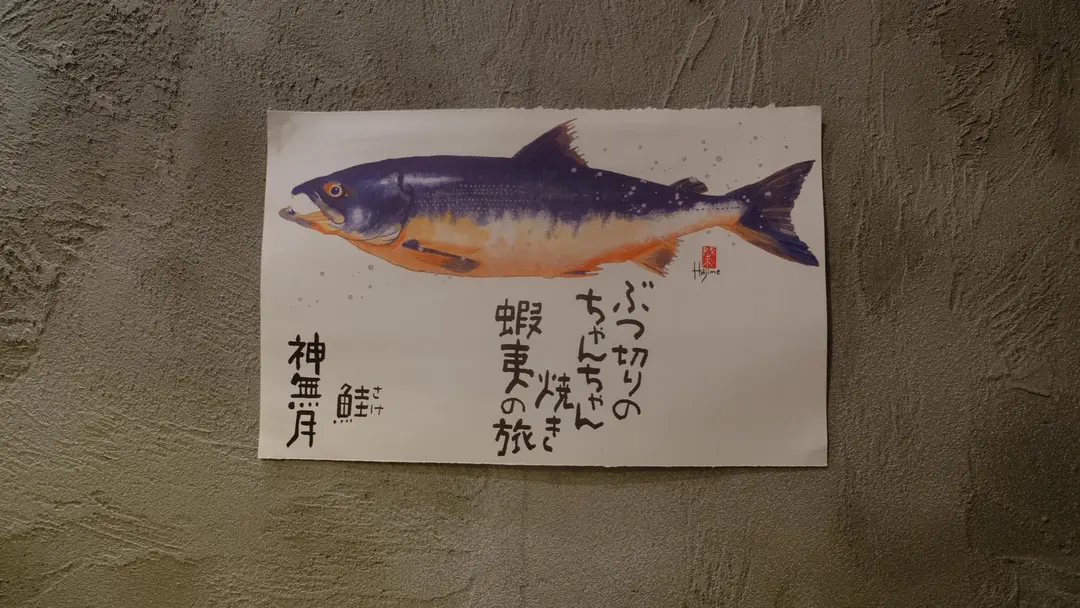 ぶつ切りの
ちゃんちゃん
焼き
蝦夷の旅
鮭
さけ
神無月
Hajime